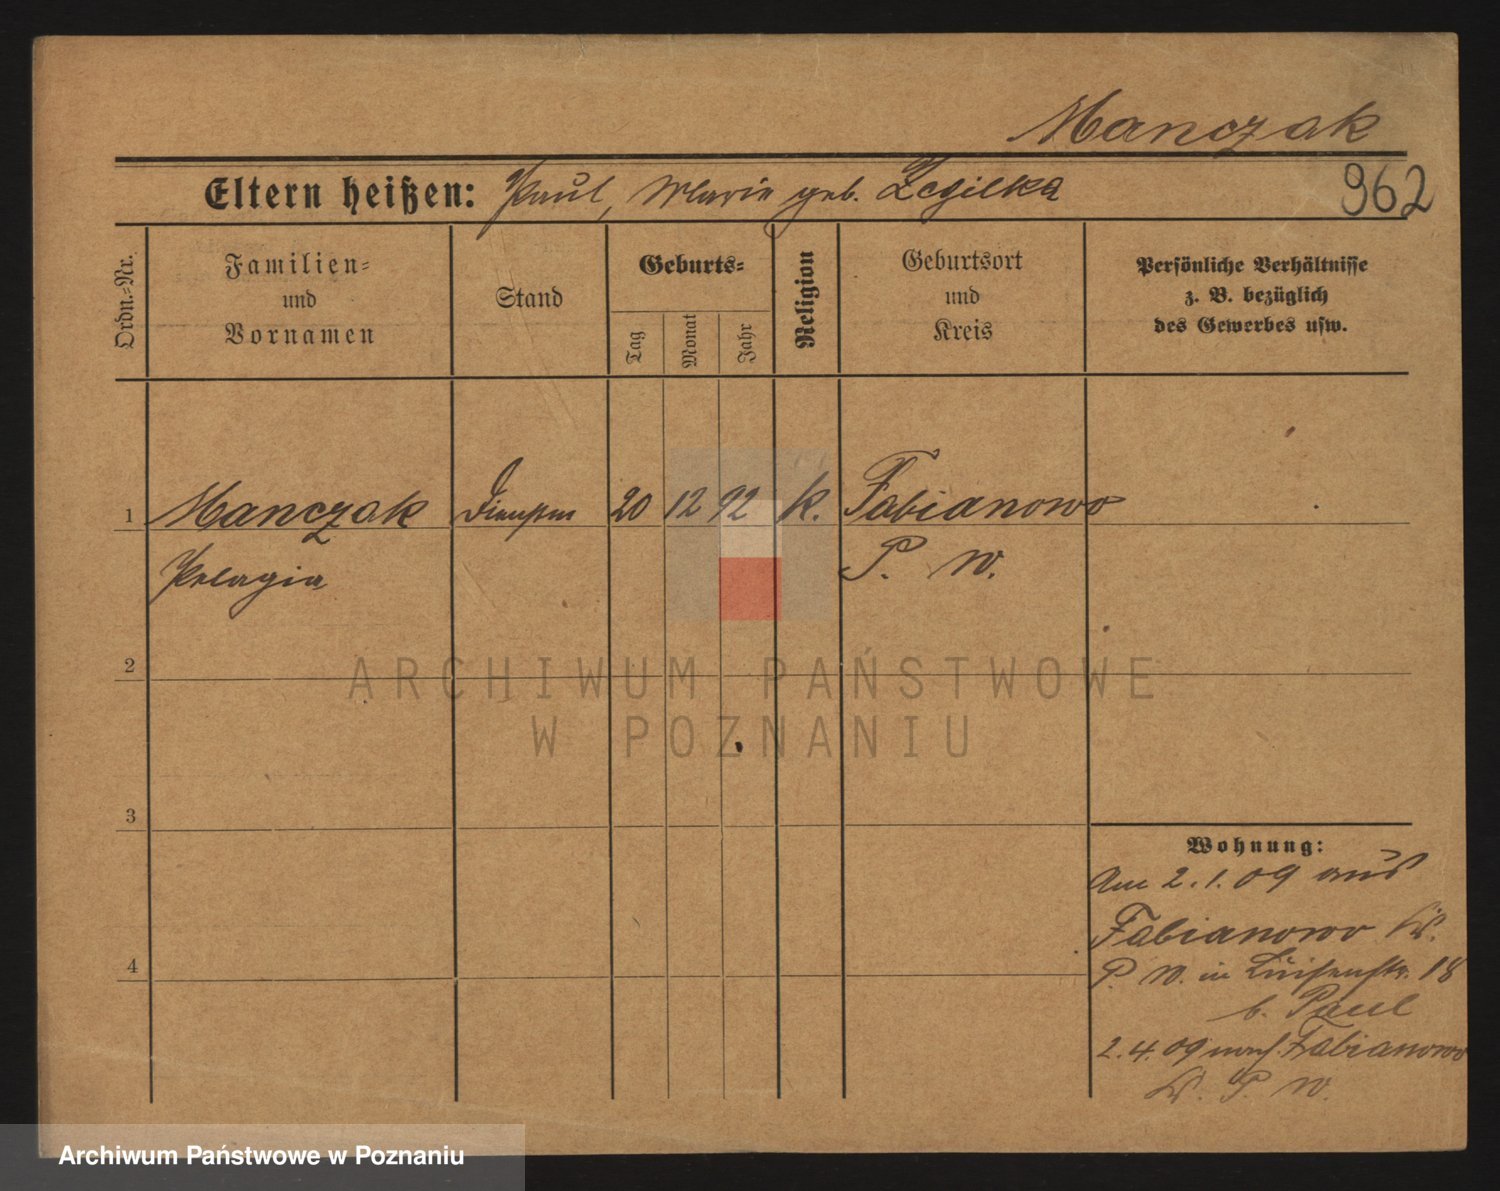 Manczak
Eltern heißen: Paul, Marie geb. Zcgilka
962
Ordn.-Nr.
Familien-
und
Vornamen
Stand
Geburts-
Tag
Monat
Jahr
Religion
Geburtsort
und
Kreis
Persönliche Verhältnisse
z. B. bezüglich
des Gewerbes usw.
1 Manczak 20 12 92 k. Fabianowo
Pelagia P. W.
2
3
4
Wohnung:
Am 2.1.09 aus
Fabianowo Kr.
P. W. in Luisenstr. 18
b. Paul
2.4.09 nach Fabianowo
Kr. P. W.
ARCHIWUM PAŃSTWOWE
W POZNANIU
Archiwum Państwowe w Poznaniu